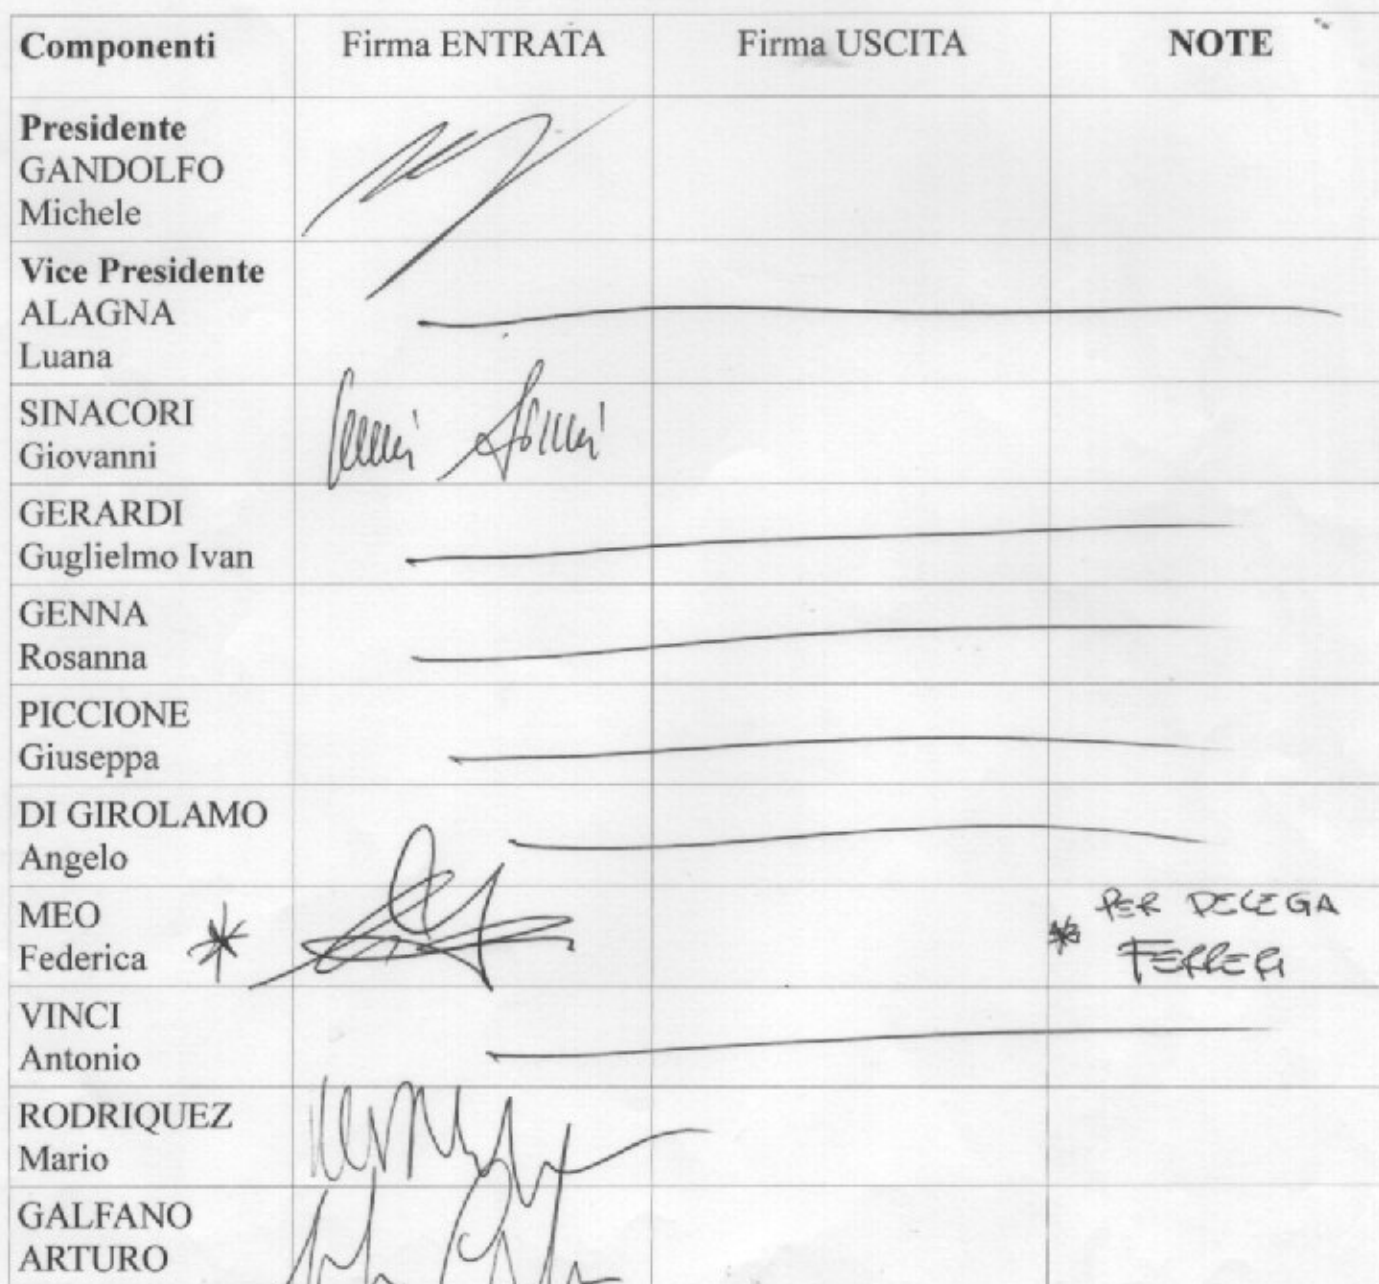 Componenti Firma ENTRATA Firma USCITA NOTE
Presidente
GANDOLFO
Michele
Vice Presidente
ALAGNA
Luana
SINACORI
Giovanni
GERARDI
Guglielmo Ivan
GENNA
Rosanna
PICCIONE
Giuseppa
DI GIROLAMO
Angelo
MEO
Federica *
* PER DELEGA
FERRERI
VINCI
Antonio
RODRIQUEZ
Mario
GALFANO
ARTURO